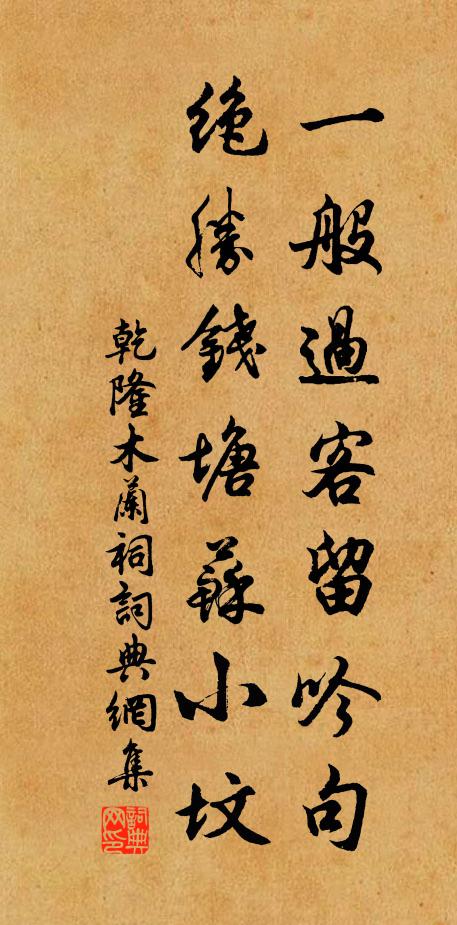 一般過客留吟句
絶勝錢塘蘇小墳
乾隆木蘭祠詞典網集
詞典网印